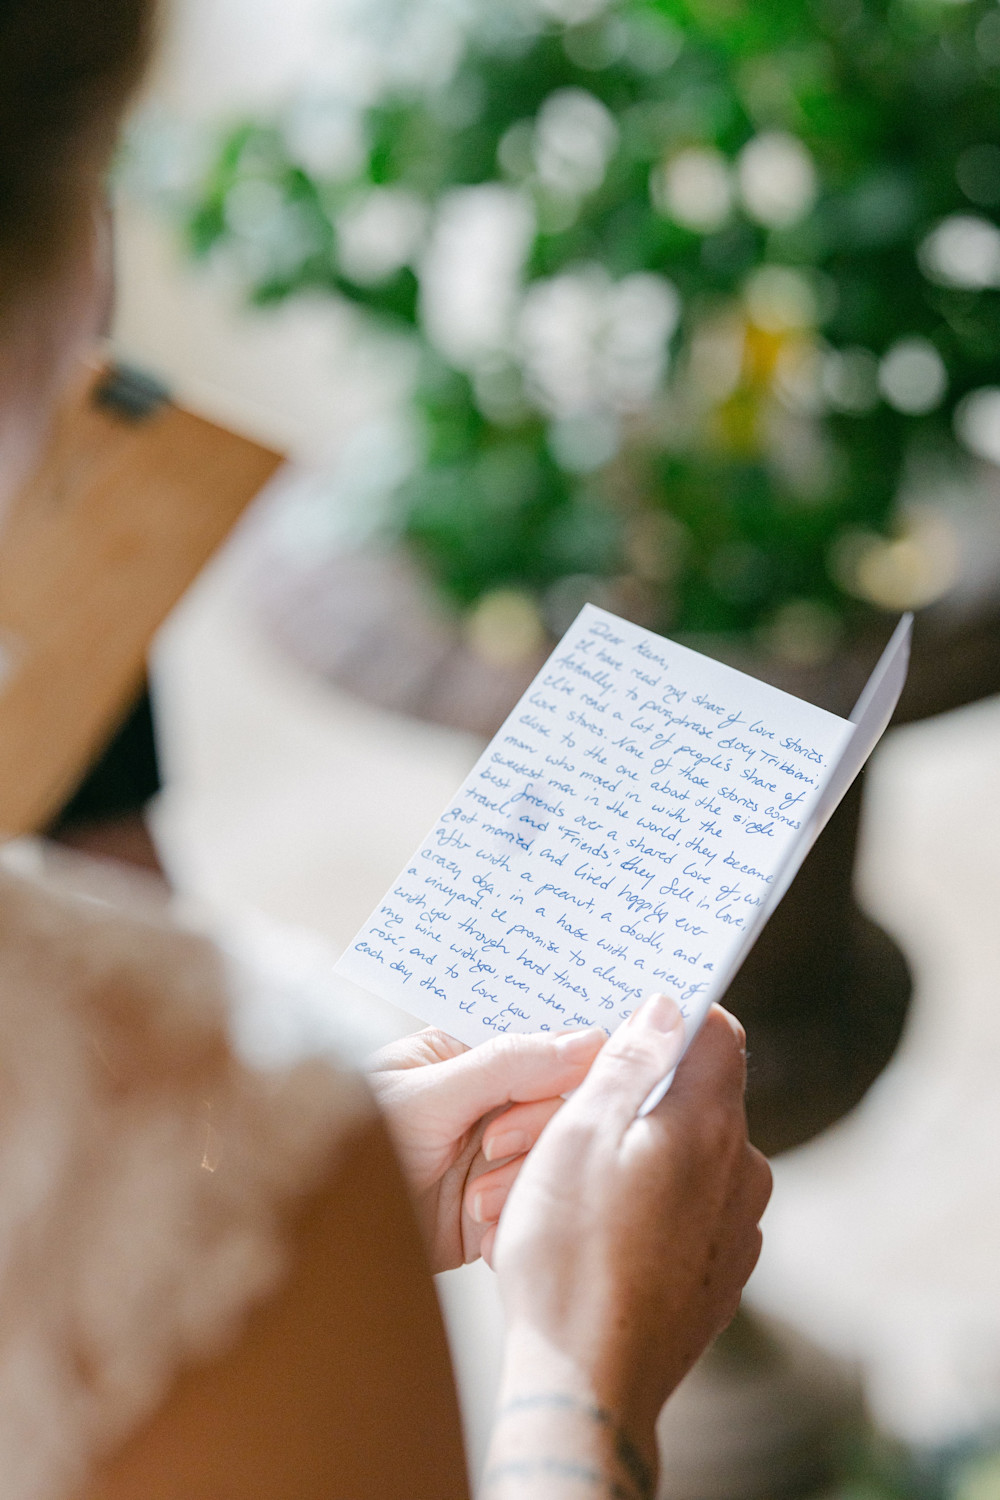 Dear Kevin,
I have read my share of love stories.
Actually, to paraphrase Joey Tribbiani,
I've read a lot of people's share of
love stories. None of those stories comes
close to the one about the single
mom who moved in with the
sweetest man in the world, they became
best friends over a shared love of,
travel, and "Friends," they fell in love,
got married, and lived happily ever
after with a peanut, a doodle, and a
crazy dog, in a house with a view of
a vineyard. I promise to always
with you through hard times, to
my wine with you, even when you
rosé, and to love you
each day than I did